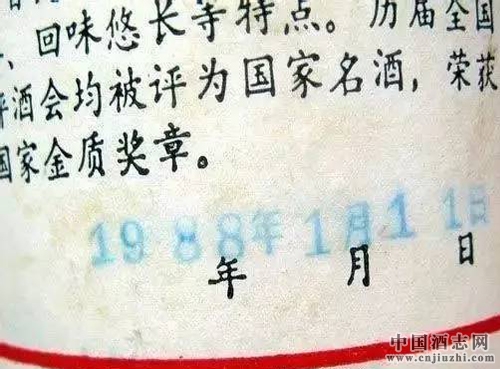 、回味悠长等特点。历届全国
评酒会均被评为国家名酒，荣获
国家金质奖章。
1988年1月11日
年 月 日
中国酒志网
www.cnjiuzhi.com